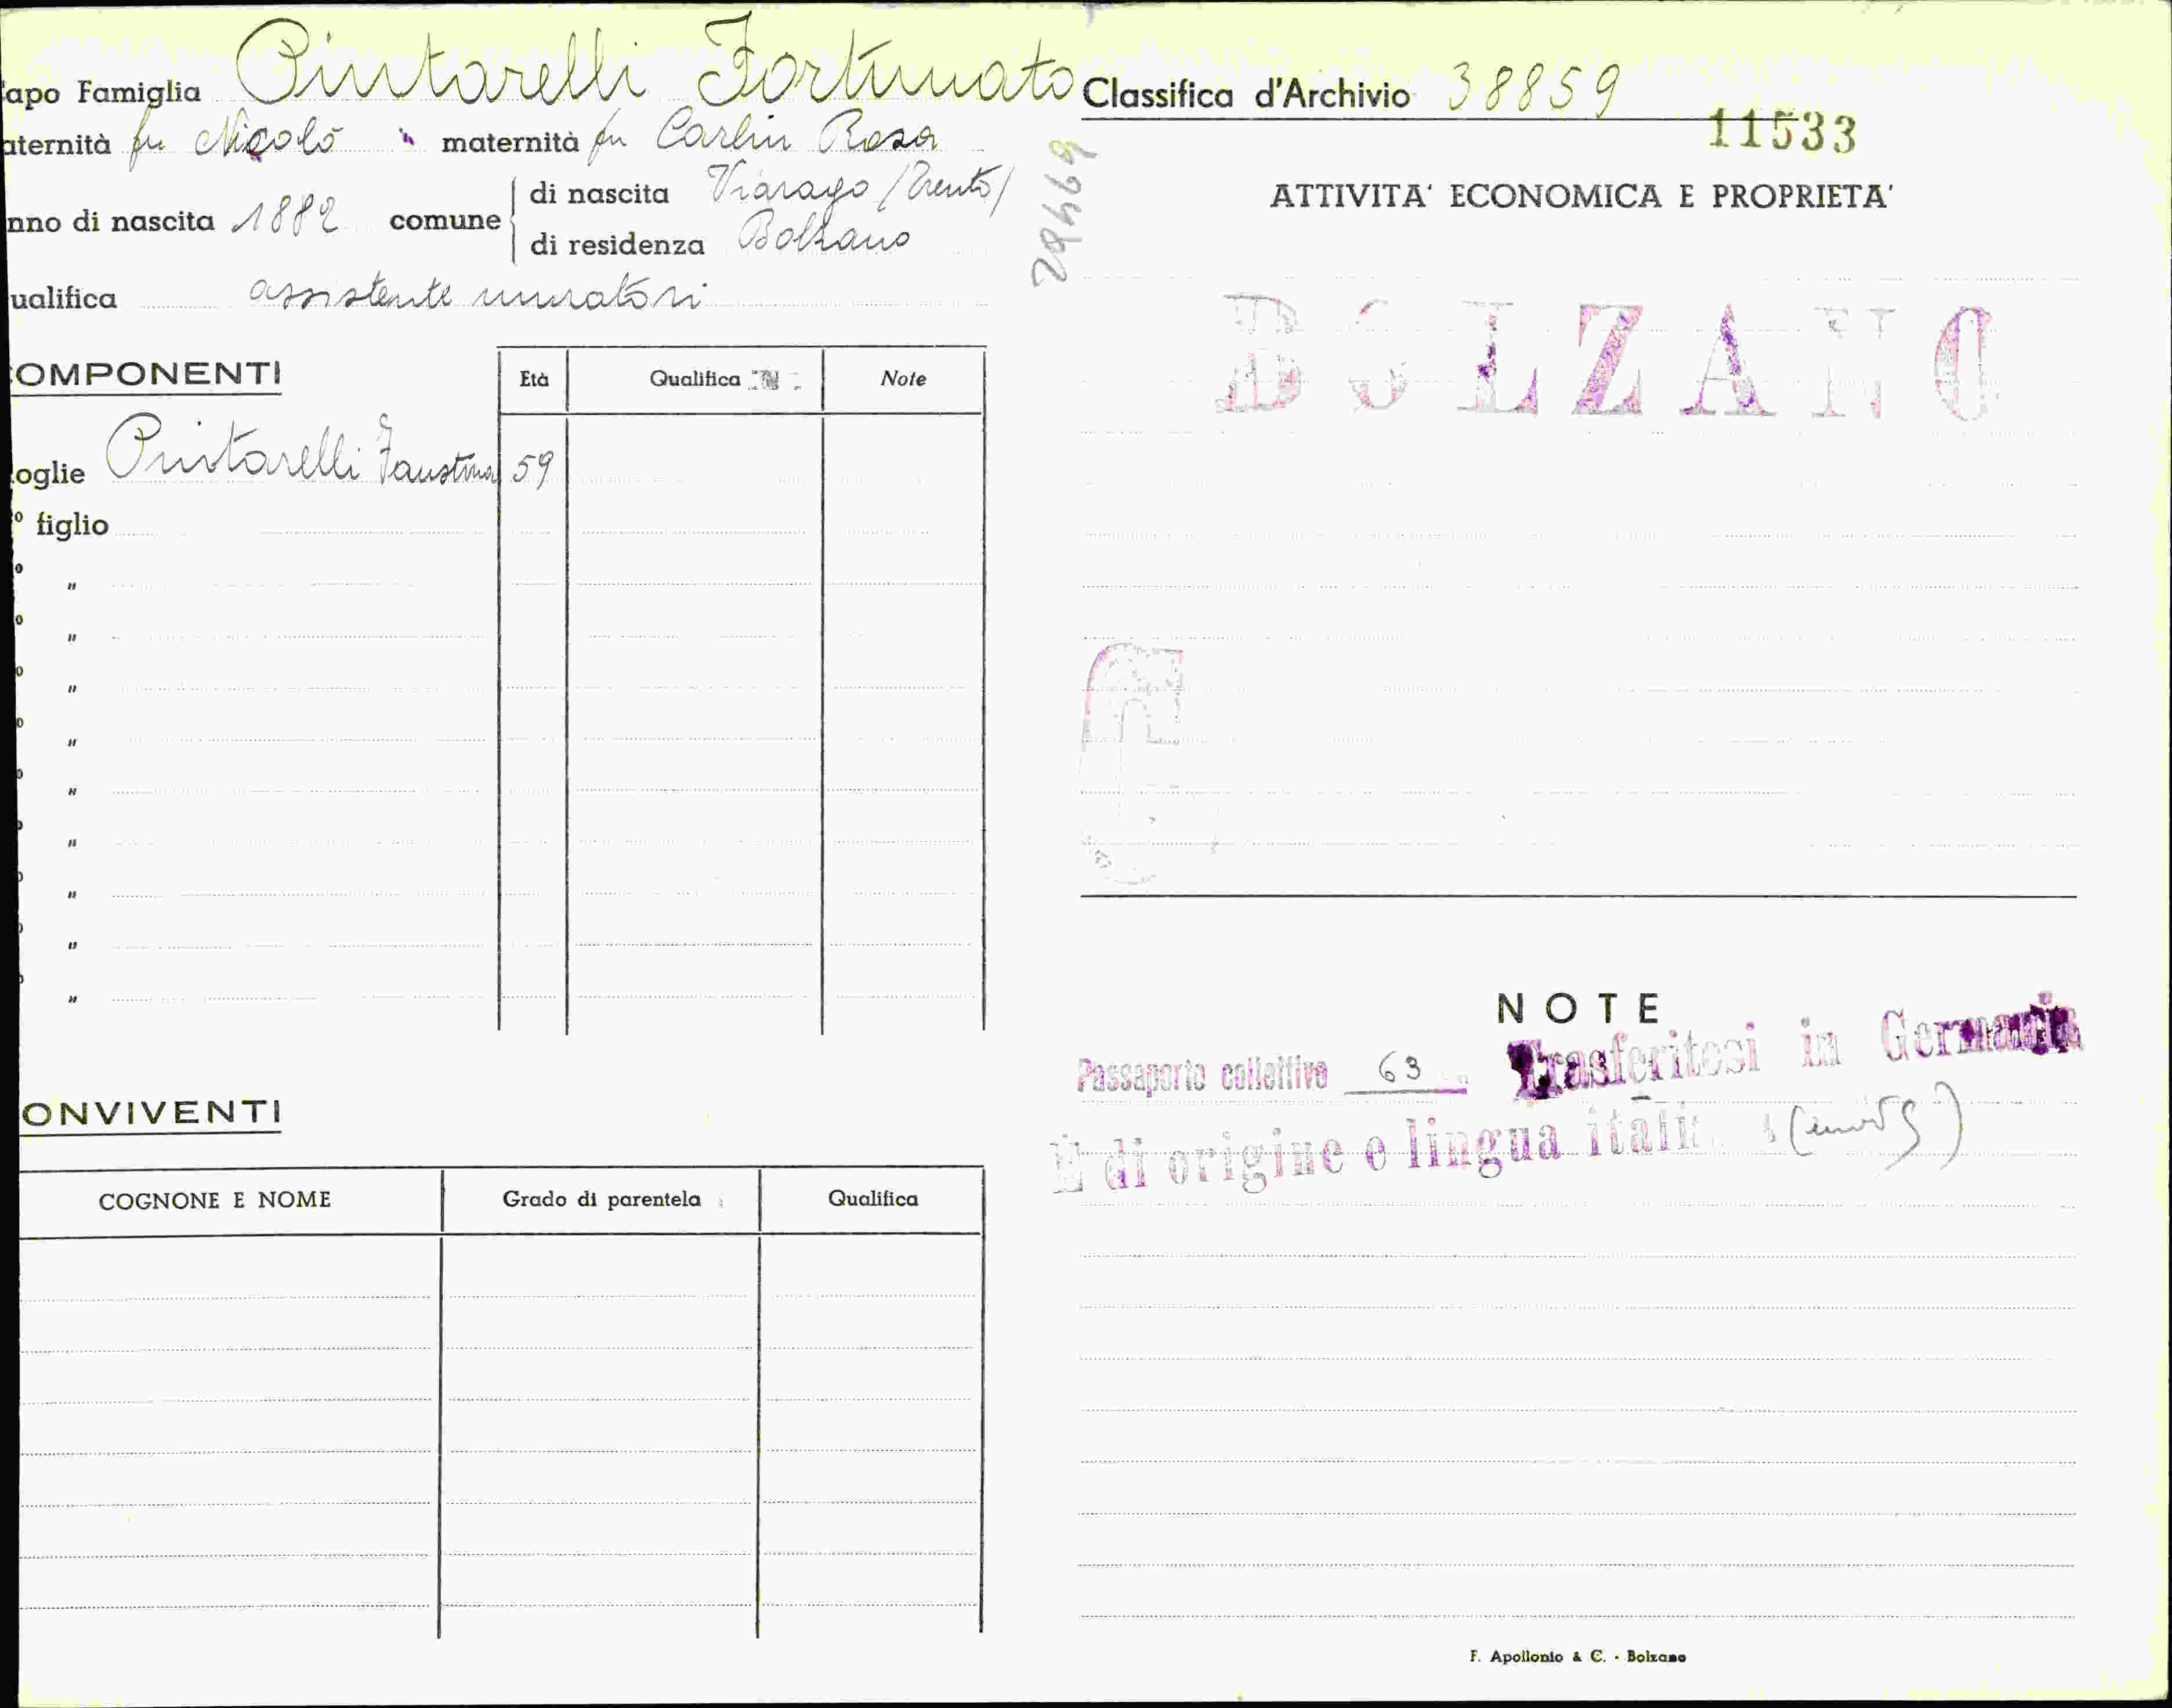 apo Famiglia Pintarelli Fortunato
aternità fu Nicolò maternità fu Carlin Rosa
nno di nascita 1882 comune di nascita Viarago /Trento/
di residenza Bolzano
ualifica assistente muratori
OMPONENTI Età Qualifica Note
oglie Pintarelli Faustina 59
º figlio
º "
º "
º "
º "
º "
º "
º "
º "
º "
ONVIVENTI
COGNONE E NOME Grado di parentela Qualifica
Classifica d'Archivio 38859
11533
29469
ATTIVITA' ECONOMICA E PROPRIETA'
BOLZANO
NOTE
Passaporto collettivo 63 Trasferitosi in Germania
È di origine e lingua
F. Apollonio & C. - Bolzano